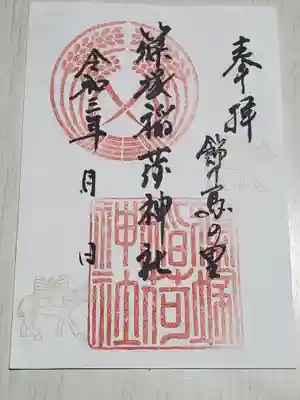 奉拝
飾り馬の里
篠塚稲荷神社
令和三年 月 日
篠塚稲荷神社